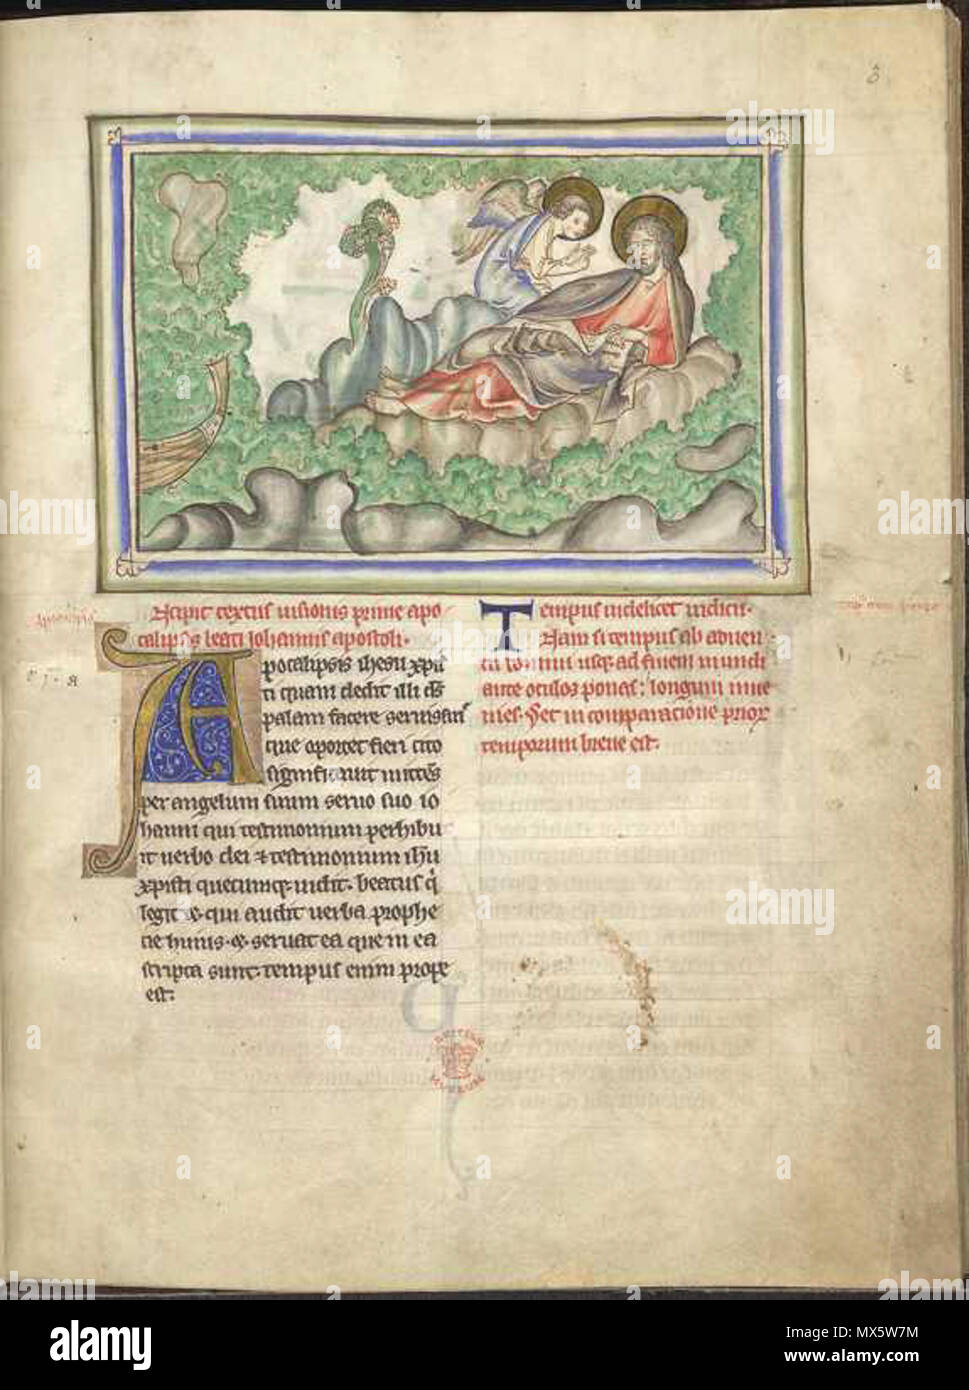 Incipit textus uisionis prime apo-
calipsis beati Iohannis apostoli.
Apocalipsis ihesu xpi
quam dedit illi ds
palam facere seruis suis
que oportet fieri cito
significauit mittens
per angelum suum seruo suo io
hanni qui testimonium perhibu
it uerbo dei & testimonium ihu
xpisti quecunq; uidit. beatus q
legit & qui audit uerba prophe
tie huius & seruat ea que in ea
scripta sunt. tempus enim prope
est.
Tempus uidelicet iudicii.
Nam si tempus ab aduen-
tu domini usq; ad finem mundi
ante oculos ponas; longum inue
nies. Set in comparacione prior
temporum breue est.
BRITISH
MUSEUM
a alamy stock photo
alamy
Image ID: MX5W7M
www.alamy.com